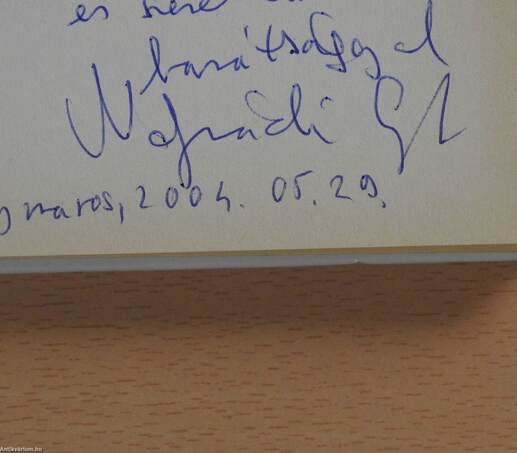 és
barátsággal
Nógrádi G
maros, 2004. 05. 29.
Antikvarium.hu